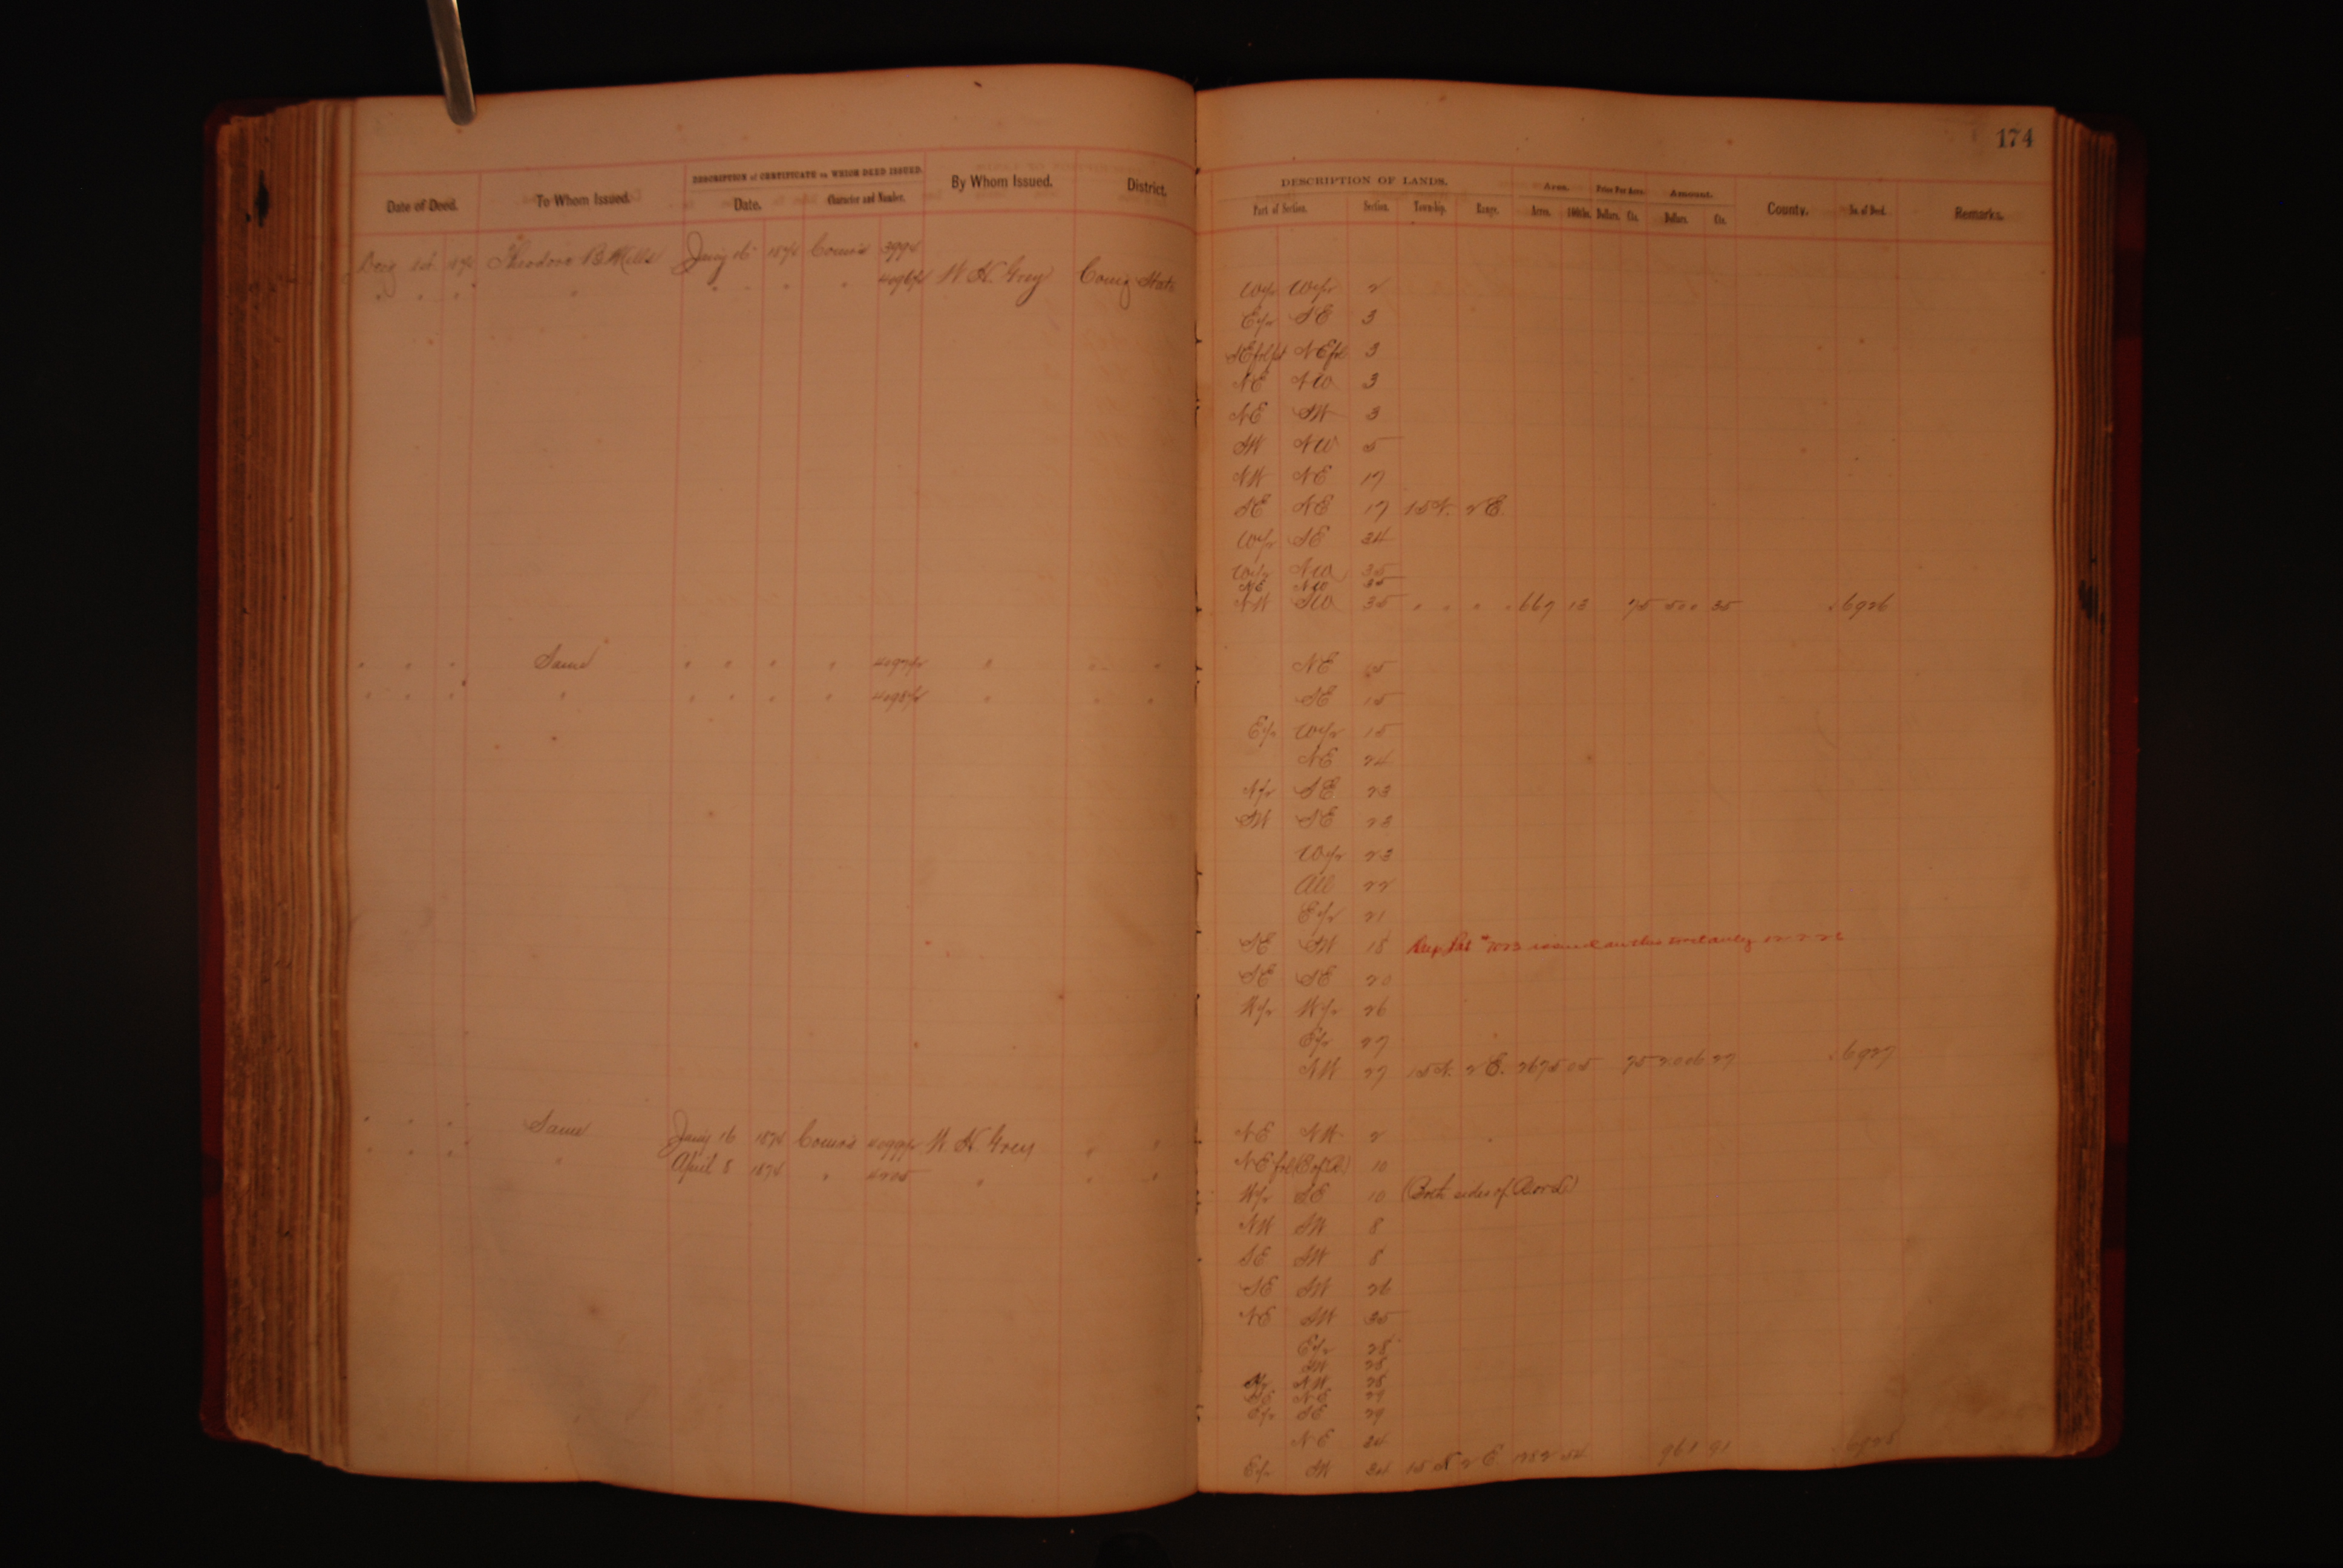 174
DESCRIPTION of CERTIFICATE on WHICH DEED ISSUED.
Date of Deed. To Whom Issued. Date. Character and Number. By Whom Issued. District.
DESCRIPTION OF LANDS. Area. Price Per Acre. Amount.
Part of Section. Section. Township. Range. Acres. 100ths. Dollars. Cts. Dollars. Cts. County. No. of Deed. Remarks.
Theodore B Mills Jany 16 1874 Comrs 3994
" " " " " " " " 4096½ W. H. Grey Comg State W½ W½ 2
E½ SE 3
NEfrl 3
NE NW 3
NE SW 3
SW NW 5
NW NE 17
SE NE 17 15N. 2E.
W½ SE 34
W½ NW 35
NE NW 35
NW SW 35 " " " " 667 13 75 500 35 6926
" " " Same " " " " 4097½ " " " NE 15
" " " " " " " " 4098½ " " " SE 15
E½ W½ 15
NE 24
N½ SE 23
SW SE 23
W½ 23
All 22
E½ 21
SE SW 18 issued on this
SE SE 20
W½ W½ 26
E½ 27
NW 27 15N. 2E. 2675 05 75 2006 27 6927
" " " Same Jany 16 1874 Comrs 4099½ W. H. Grey " " NE NW 2
" " " " April 8 1874 " 4205 " " " NE frl 10
W½ SE 10 (Both sides of Road)
NW SW 8
SE SW 8
SE SW 26
NE SW 35
E½ 28
SW 28
NW 28
NE 29
E½ SE 29
NE 34
E½ SW 34 15 N 2 E 961 91